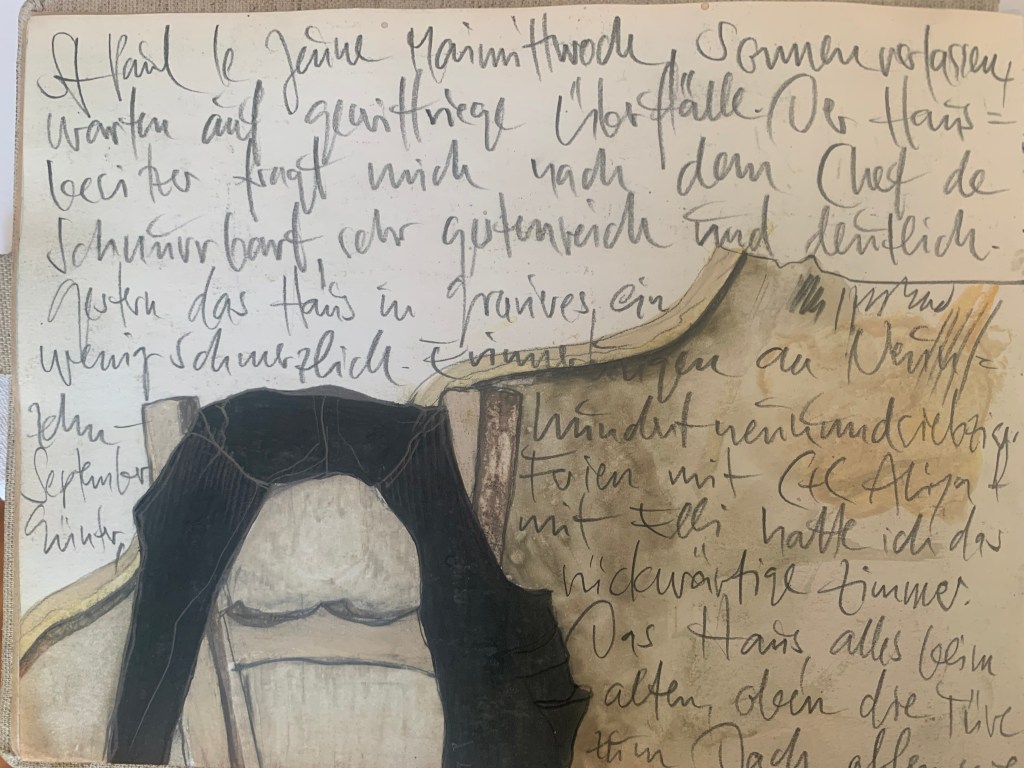 St Paul le Jeune Maimittwoch, Sonnenverlassen,
warten auf gewittrige Überfälle. Der Haus=
besitzer fragt mich nach dem Chef de
Schnurrbart, sehr gestenreich und deutlich.
Gestern das Haus in Gravières, ein
wenig schmerzlich. Erinnerungen an Neun=
zehn-
hundertneunundsiebzig,
September
Ferien mit
Günter,
mit Elli hatte ich das
rückwärtige Zimmer.
Das Haus, alles beim
alten, oben die Türe
zum Dach offen